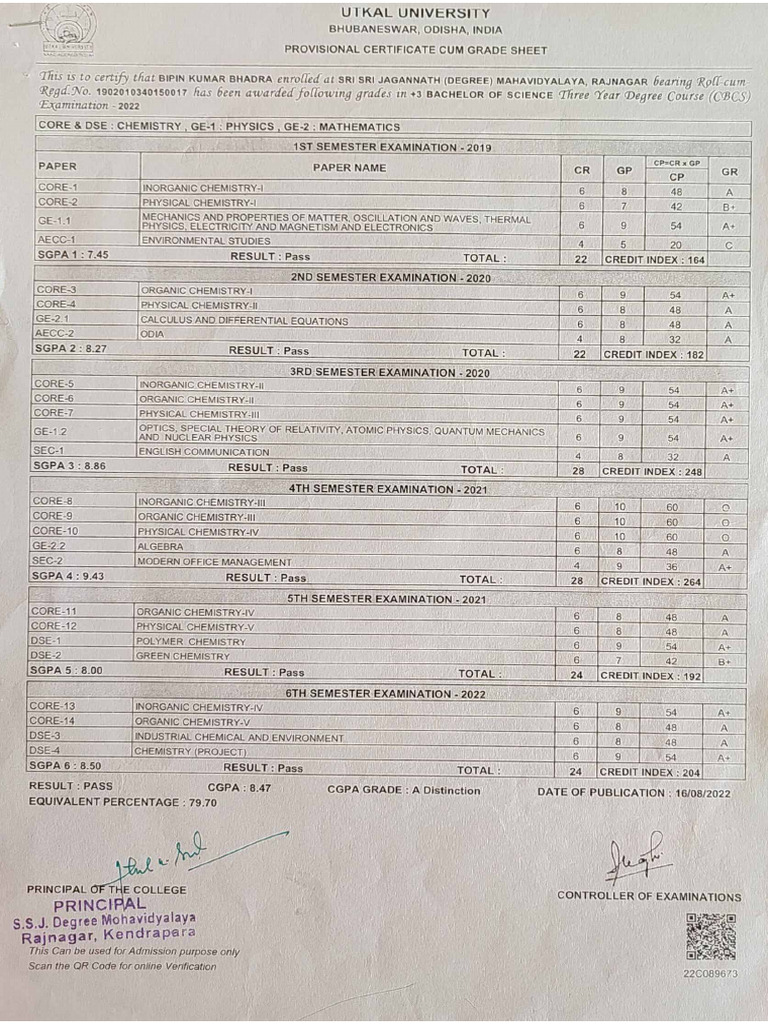 UTKAL UNIVERSITY
BHUBANESWAR, ODISHA, INDIA
PROVISIONAL CERTIFICATE CUM GRADE SHEET
This is to certify that BIPIN KUMAR BHADRA enrolled at SRI SRI JAGANNATH (DEGREE) MAHAVIDYALAYA, RAJNAGAR bearing Roll-cum-
Regd.No. 1902010340150017 has been awarded following grades in +3 BACHELOR OF SCIENCE Three Year Degree Course (CBCS)
Examination - 2022
CORE & DSE : CHEMISTRY , GE-1 : PHYSICS , GE-2 : MATHEMATICS
1ST SEMESTER EXAMINATION - 2019
PAPER PAPER NAME CR GP CP=CR x GP CP GR
CORE-1 INORGANIC CHEMISTRY-I 6 8 48 A
CORE-2 PHYSICAL CHEMISTRY-I 6 7 42 B+
GE-1.1 MECHANICS AND PROPERTIES OF MATTER, OSCILLATION AND WAVES, THERMAL
PHYSICS, ELECTRICITY AND MAGNETISM AND ELECTRONICS 6 9 54 A+
AECC-1 ENVIRONMENTAL STUDIES 4 5 20 C
SGPA 1 : 7.45 RESULT : Pass TOTAL : 22 CREDIT INDEX : 164
2ND SEMESTER EXAMINATION - 2020
CORE-3 ORGANIC CHEMISTRY-I 6 9 54 A+
CORE-4 PHYSICAL CHEMISTRY-II 6 8 48 A
GE-2.1 CALCULUS AND DIFFERENTIAL EQUATIONS 6 8 48 A
AECC-2 ODIA 4 8 32 A
SGPA 2 : 8.27 RESULT : Pass TOTAL : 22 CREDIT INDEX : 182
3RD SEMESTER EXAMINATION - 2020
CORE-5 INORGANIC CHEMISTRY-II 6 9 54 A+
CORE-6 ORGANIC CHEMISTRY-II 6 9 54 A+
CORE-7 PHYSICAL CHEMISTRY-III 6 9 54 A+
GE-1.2 OPTICS, SPECIAL THEORY OF RELATIVITY, ATOMIC PHYSICS, QUANTUM MECHANICS
AND NUCLEAR PHYSICS 6 9 54 A+
SEC-1 ENGLISH COMMUNICATION 4 8 32 A
SGPA 3 : 8.86 RESULT : Pass TOTAL : 28 CREDIT INDEX : 248
4TH SEMESTER EXAMINATION - 2021
CORE-8 INORGANIC CHEMISTRY-III 6 10 60 O
CORE-9 ORGANIC CHEMISTRY-III 6 10 60 O
CORE-10 PHYSICAL CHEMISTRY-IV 6 10 60 O
GE-2.2 ALGEBRA 6 8 48 A
SEC-2 MODERN OFFICE MANAGEMENT 4 9 36 A+
SGPA 4 : 9.43 RESULT : Pass TOTAL : 28 CREDIT INDEX : 264
5TH SEMESTER EXAMINATION - 2021
CORE-11 ORGANIC CHEMISTRY-IV 6 8 48 A
CORE-12 PHYSICAL CHEMISTRY-V 6 8 48 A
DSE-1 POLYMER CHEMISTRY 6 9 54 A+
DSE-2 GREEN CHEMISTRY 6 7 42 B+
SGPA 5 : 8.00 RESULT : Pass TOTAL : 24 CREDIT INDEX : 192
6TH SEMESTER EXAMINATION - 2022
CORE-13 INORGANIC CHEMISTRY-IV 6 9 54 A+
CORE-14 ORGANIC CHEMISTRY-V 6 8 48 A
DSE-3 INDUSTRIAL CHEMICAL AND ENVIRONMENT 6 8 48 A
DSE-4 CHEMISTRY (PROJECT) 6 9 54 A+
SGPA 6 : 8.50 RESULT : Pass TOTAL : 24 CREDIT INDEX : 204
RESULT : PASS CGPA : 8.47 CGPA GRADE : A Distinction DATE OF PUBLICATION : 16/08/2022
EQUIVALENT PERCENTAGE : 79.70
PRINCIPAL OF THE COLLEGE CONTROLLER OF EXAMINATIONS
PRINCIPAL
S.S.J. Degree Mohavidyalaya
Rajnagar, Kendrapara
This Can be used for Admission purpose only
Scan the QR Code for online Verification
22C089673